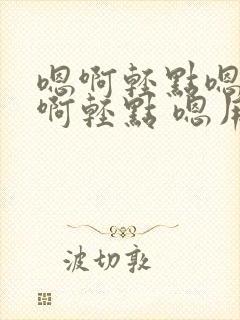 嗯啊轻點嗯
啊轻點 嗯
波切敦